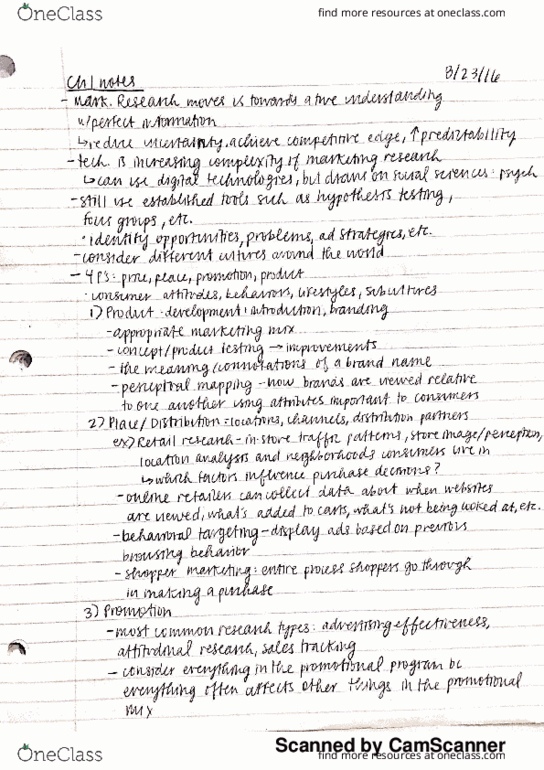 OneClass
find more resources at oneclass.com
8/23/16
Ch 1 notes
- Mark. Research moves us towards a true understanding
w/ perfect information
↳ reduce uncertainty, achieve competitive edge, ↑ predictability
- tech. is increasing complexity of marketing research
↳ can use digital technologies, but draws on social sciences: psych
- still use established tools such as hypothesis testing,
focus groups, etc.
· identify opportunities, problems, ad strategies, etc.
- consider different cultures around the world
- 4 P's: price, place, promotion, product
· consumer attitudes, behaviors, lifestyles, subcultures
1) Product - development: introduction, branding
- appropriate marketing mix
- concept/product testing → improvements
- the meaning/connotations of a brand name
- perceptual mapping - how brands are viewed relative
to one another using attributes important to consumers
2) Place/Distribution = locations, channels, distribution partners
ex) Retail research - in-store traffic patterns, store image/perception,
location analysis and neighborhoods consumers live in
↳ which factors influence purchase decisions?
- online retailers can collect data about when websites
are viewed, what's added to carts, what's not being looked at, etc.
- behavioral targeting - display ads based on previous
browsing behavior
- shopper marketing: entire process shoppers go through
in making a purchase
3) Promotion
- most common research types: advertising effectiveness,
attitudinal research, sales tracking
- consider everything in the promotional program bc
everything often affects other things in the promotional
mix
Scanned by CamScanner
OneClass
find more resources at oneclass.com